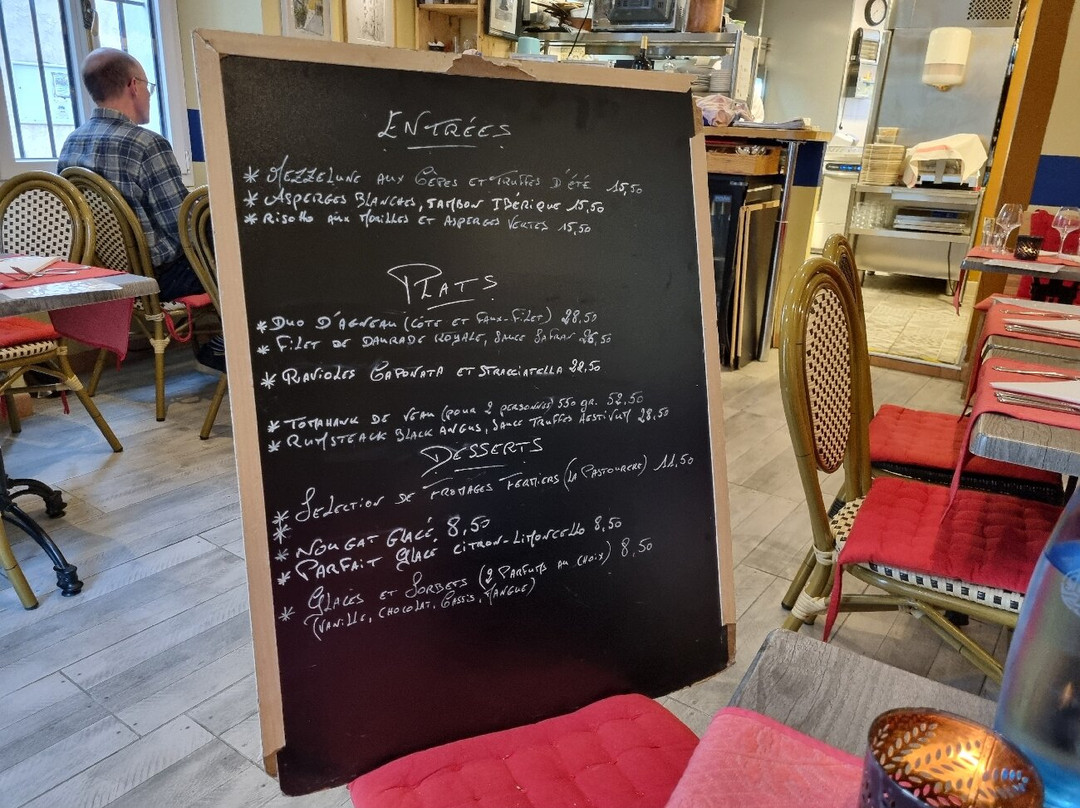 ENTRÉES
* MEZZELUNE AUX CEPES ET TRUFFES D'ÉTÉ 15,50
* ASPERGES BLANCHES, JAMBON IBERIQUE 15,50
* RISOTTO AUX MORILLES ET ASPERGES VERTES 15,50
PLATS
* DUO D'AGNEAU (COTE ET FAUX-FILET) 28,50
* FILET DE DAURADE ROYALE, SAUCE SAFRAN 26,50
* RAVIOLES CAPONATA ET STRACCIATELLA 22,50
* TOMAHAWK DE VEAU (POUR 2 PERSONNES) 550 GR. 52,50
* RUMSTEACK BLACK ANGUS, SAUCE TRUFFES AESTIVUM 28,50
DESSERTS
* SELECTION DE FROMAGES FERMIERS (LA PASTOURELLE) 11,50
*
* NOUGAT GLACÉ. 8,50
* PARFAIT GLACE CITRON-LIMONCELLO 8,50
* GLACES ET SORBETS (2 PARFUMS AU CHOIX) 8,50
(VANILLE, CHOCOLAT, CASSIS, MANGUE)